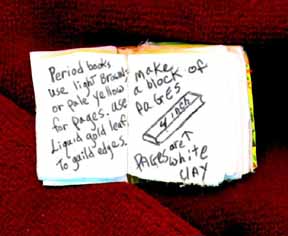 Period books
use light Browns
or pale yellow
for pages. use
Liquid gold leaf
To guild edges.
make
a block of
PAGES
4 inch
PAGES are white
ClAY